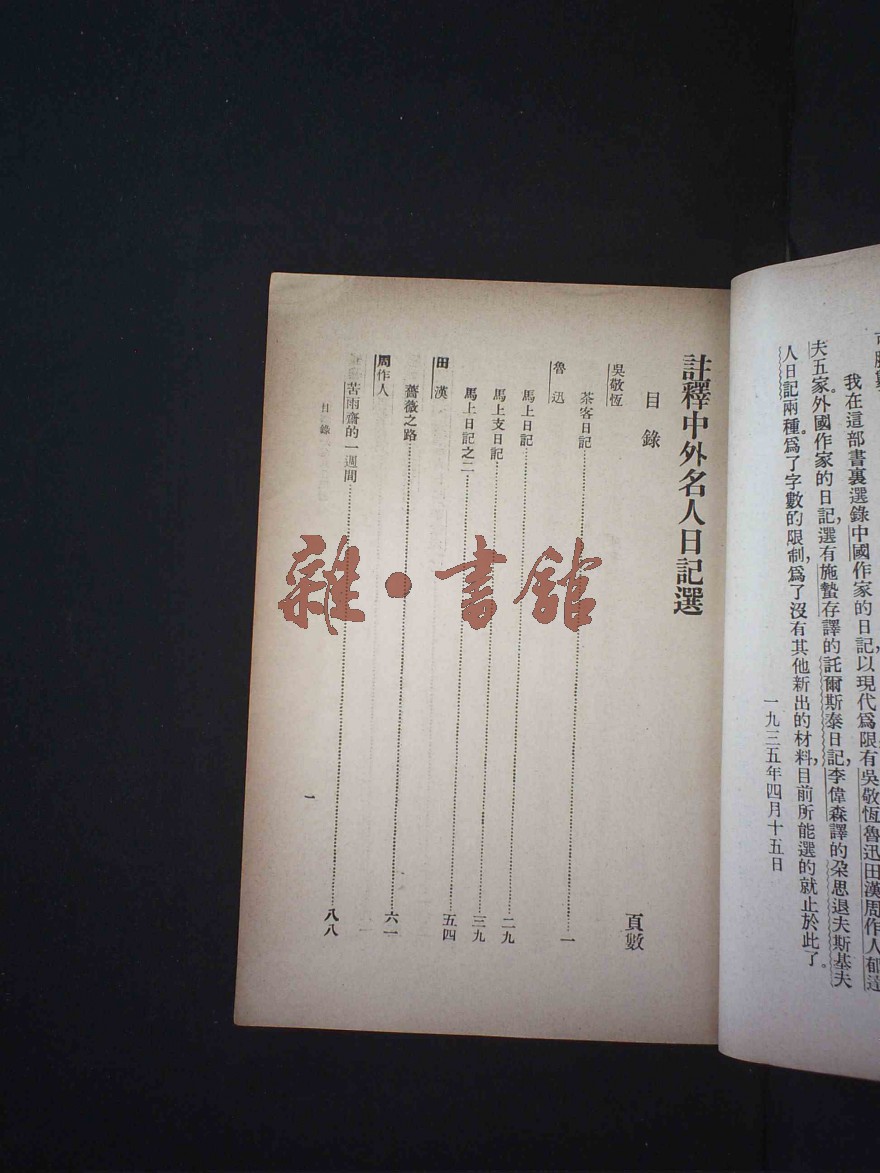 我在這部書裏選錄中國作家的日記,以現代爲限,有吳敬恆魯迅田漢周作人郁達
夫五家。外國作家的日記,選有施蟄存譯的託爾斯泰日記,李偉森譯的朶思退夫斯基夫
人日記兩種。爲了字數的限制,爲了沒有其他新出的材料,目前所能選的就止於此了。
一九三五年四月十五日
註釋中外名人日記選
目錄 頁數
吳敬恆
茶客日記……一
魯迅
馬上日記……二九
馬上支日記……三九
馬上日記之二……五四
田漢
薔薇之路……六一
周作人
苦雨齋的一週間……八八
目錄 一
雜·書館